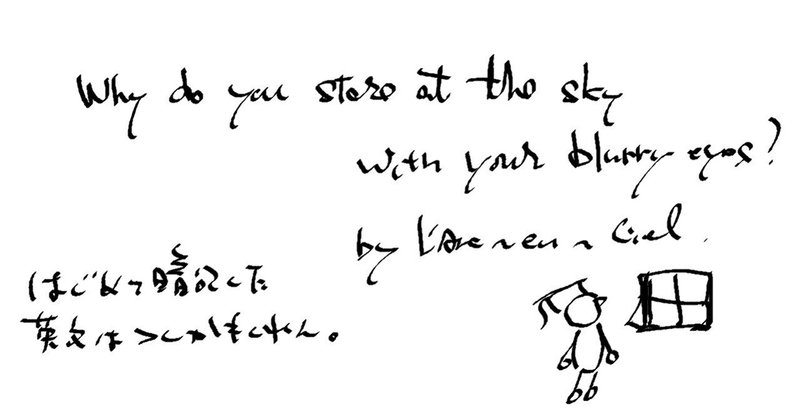 Why do you stare at the sky
with your blurry eyes?
by L'Arc~en~Ciel.
はじめて暗記した
英文はコレかもしれん。